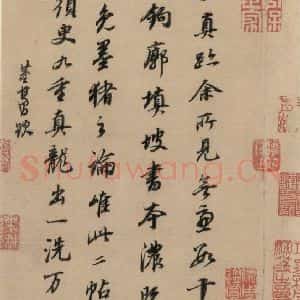 真跡余所見無慮數十
鉤廓填坡書本濃既
免墨豬之論唯此二帖
須臾九重真龍出一洗万
董其昌跋
Shufawang.CN